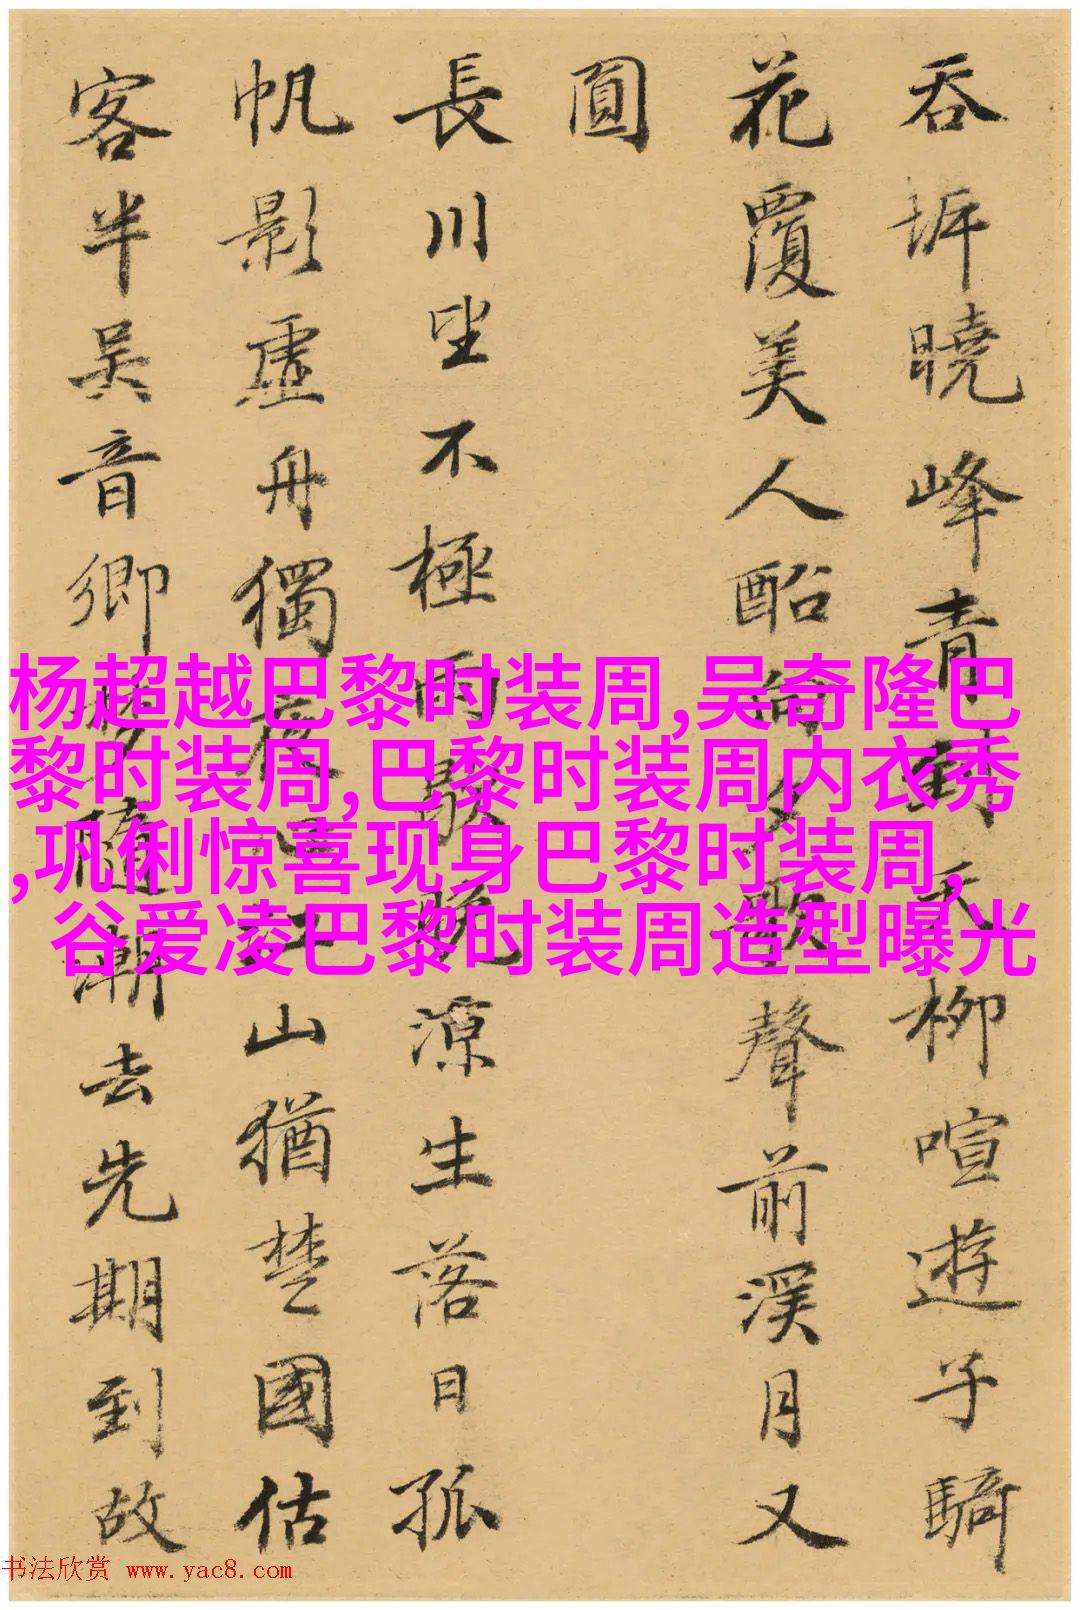 吞坼曉峰青野柳喧遊子騎
花覆美人歌聲前溪月又
圓
長川坐不極雨歇晚涼生落日孤
帆影虛舟獨夜心江山猶楚國估
客半吳音鄉夢隨潮去先期到故
杨超越巴黎时装周,吴奇隆巴
黎时装周,巴黎时装周内衣秀
,巩俐惊喜现身巴黎时装周,
谷爱凌巴黎时装周造型曝光
书法欣赏 www.yac8.com